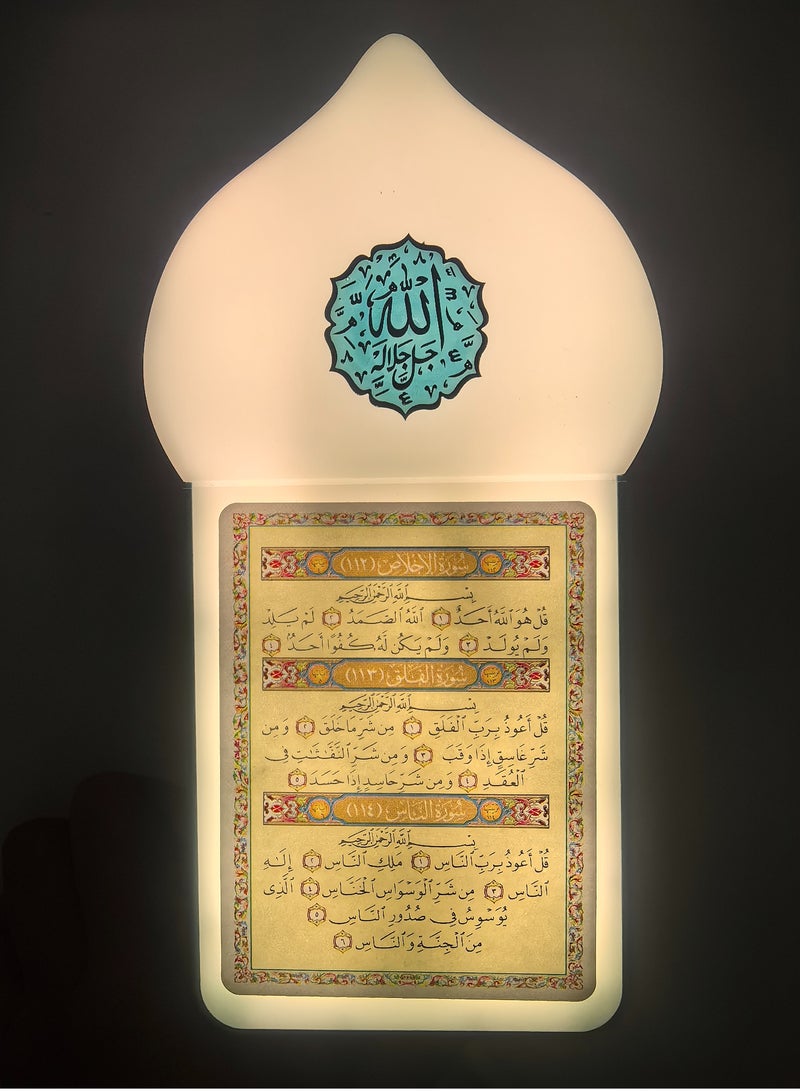 الله
جل جلاله
سورة الإخلاص (١١٢)
بِسْمِ ٱللَّهِ ٱلرَّحْمَٰنِ ٱلرَّحِيمِ
قُلْ هُوَ ٱللَّهُ أَحَدٌ ١ ٱللَّهُ ٱلصَّمَدُ ٢ لَمْ يَلِدْ
وَلَمْ يُولَدْ ٣ وَلَمْ يَكُن لَّهُۥ كُفُوًا أَحَدٌۢ ٤
سورة الفلق (١١٣)
بِسْمِ ٱللَّهِ ٱلرَّحْمَٰنِ ٱلرَّحِيمِ
قُلْ أَعُوذُ بِرَبِّ ٱلْفَلَقِ ١ مِن شَرِّ مَا خَلَقَ ٢ وَمِن
شَرِّ غَاسِقٍ إِذَا وَقَبَ ٣ وَمِن شَرِّ ٱلنَّفَّٰثَٰتِ فِى
ٱلْعُقَدِ ٤ وَمِن شَرِّ حَاسِدٍ إِذَا حَسَدَ ٥
سورة الناس (١١٤)
بِسْمِ ٱللَّهِ ٱلرَّحْمَٰنِ ٱلرَّحِيمِ
قُلْ أَعُوذُ بِرَبِّ ٱلنَّاسِ ١ مَلِكِ ٱلنَّاسِ ٢ إِلَٰهِ
ٱلنَّاسِ ٣ مِن شَرِّ ٱلْوَسْوَاسِ ٱلْخَنَّاسِ ٤ ٱلَّذِى
يُوَسْوِسُ فِى صُدُورِ ٱلنَّاسِ ٥
مِنَ ٱلْجِنَّةِ وَٱلنَّاسِ ٦